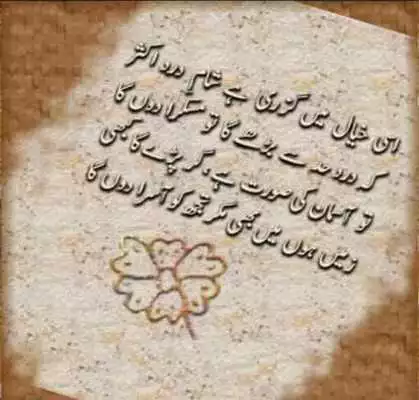 اسی خیال میں گزری ہے شامِ درد اکثر
کہ درد حد سے بڑھے گا تو مسکرا دوں گا
تو آسمان کی صورت ہے، گر پڑے گا کبھی
زمیں ہوں میں بھی مگر تجھ کو آسرا دوں گا